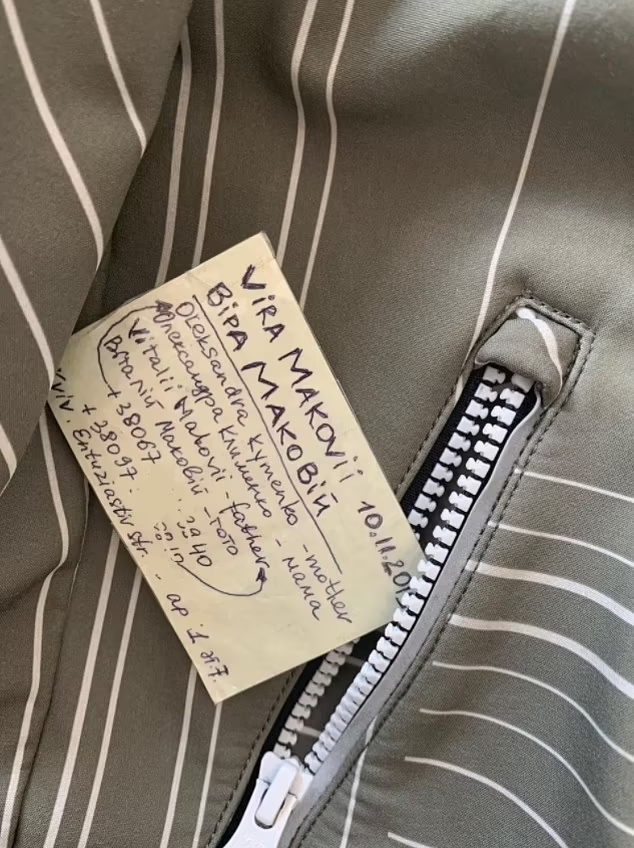 VIRA MAKOVII 10.11.201
ВІРА МАКОВІЙ
Oleksandra Kymenko - mother
Олександра Клименко - мама
Vitalii Makovii - father
Віталій Маковій - тато
+38067 3940
+38097
Kyiv. Entuziastiv str. ap.